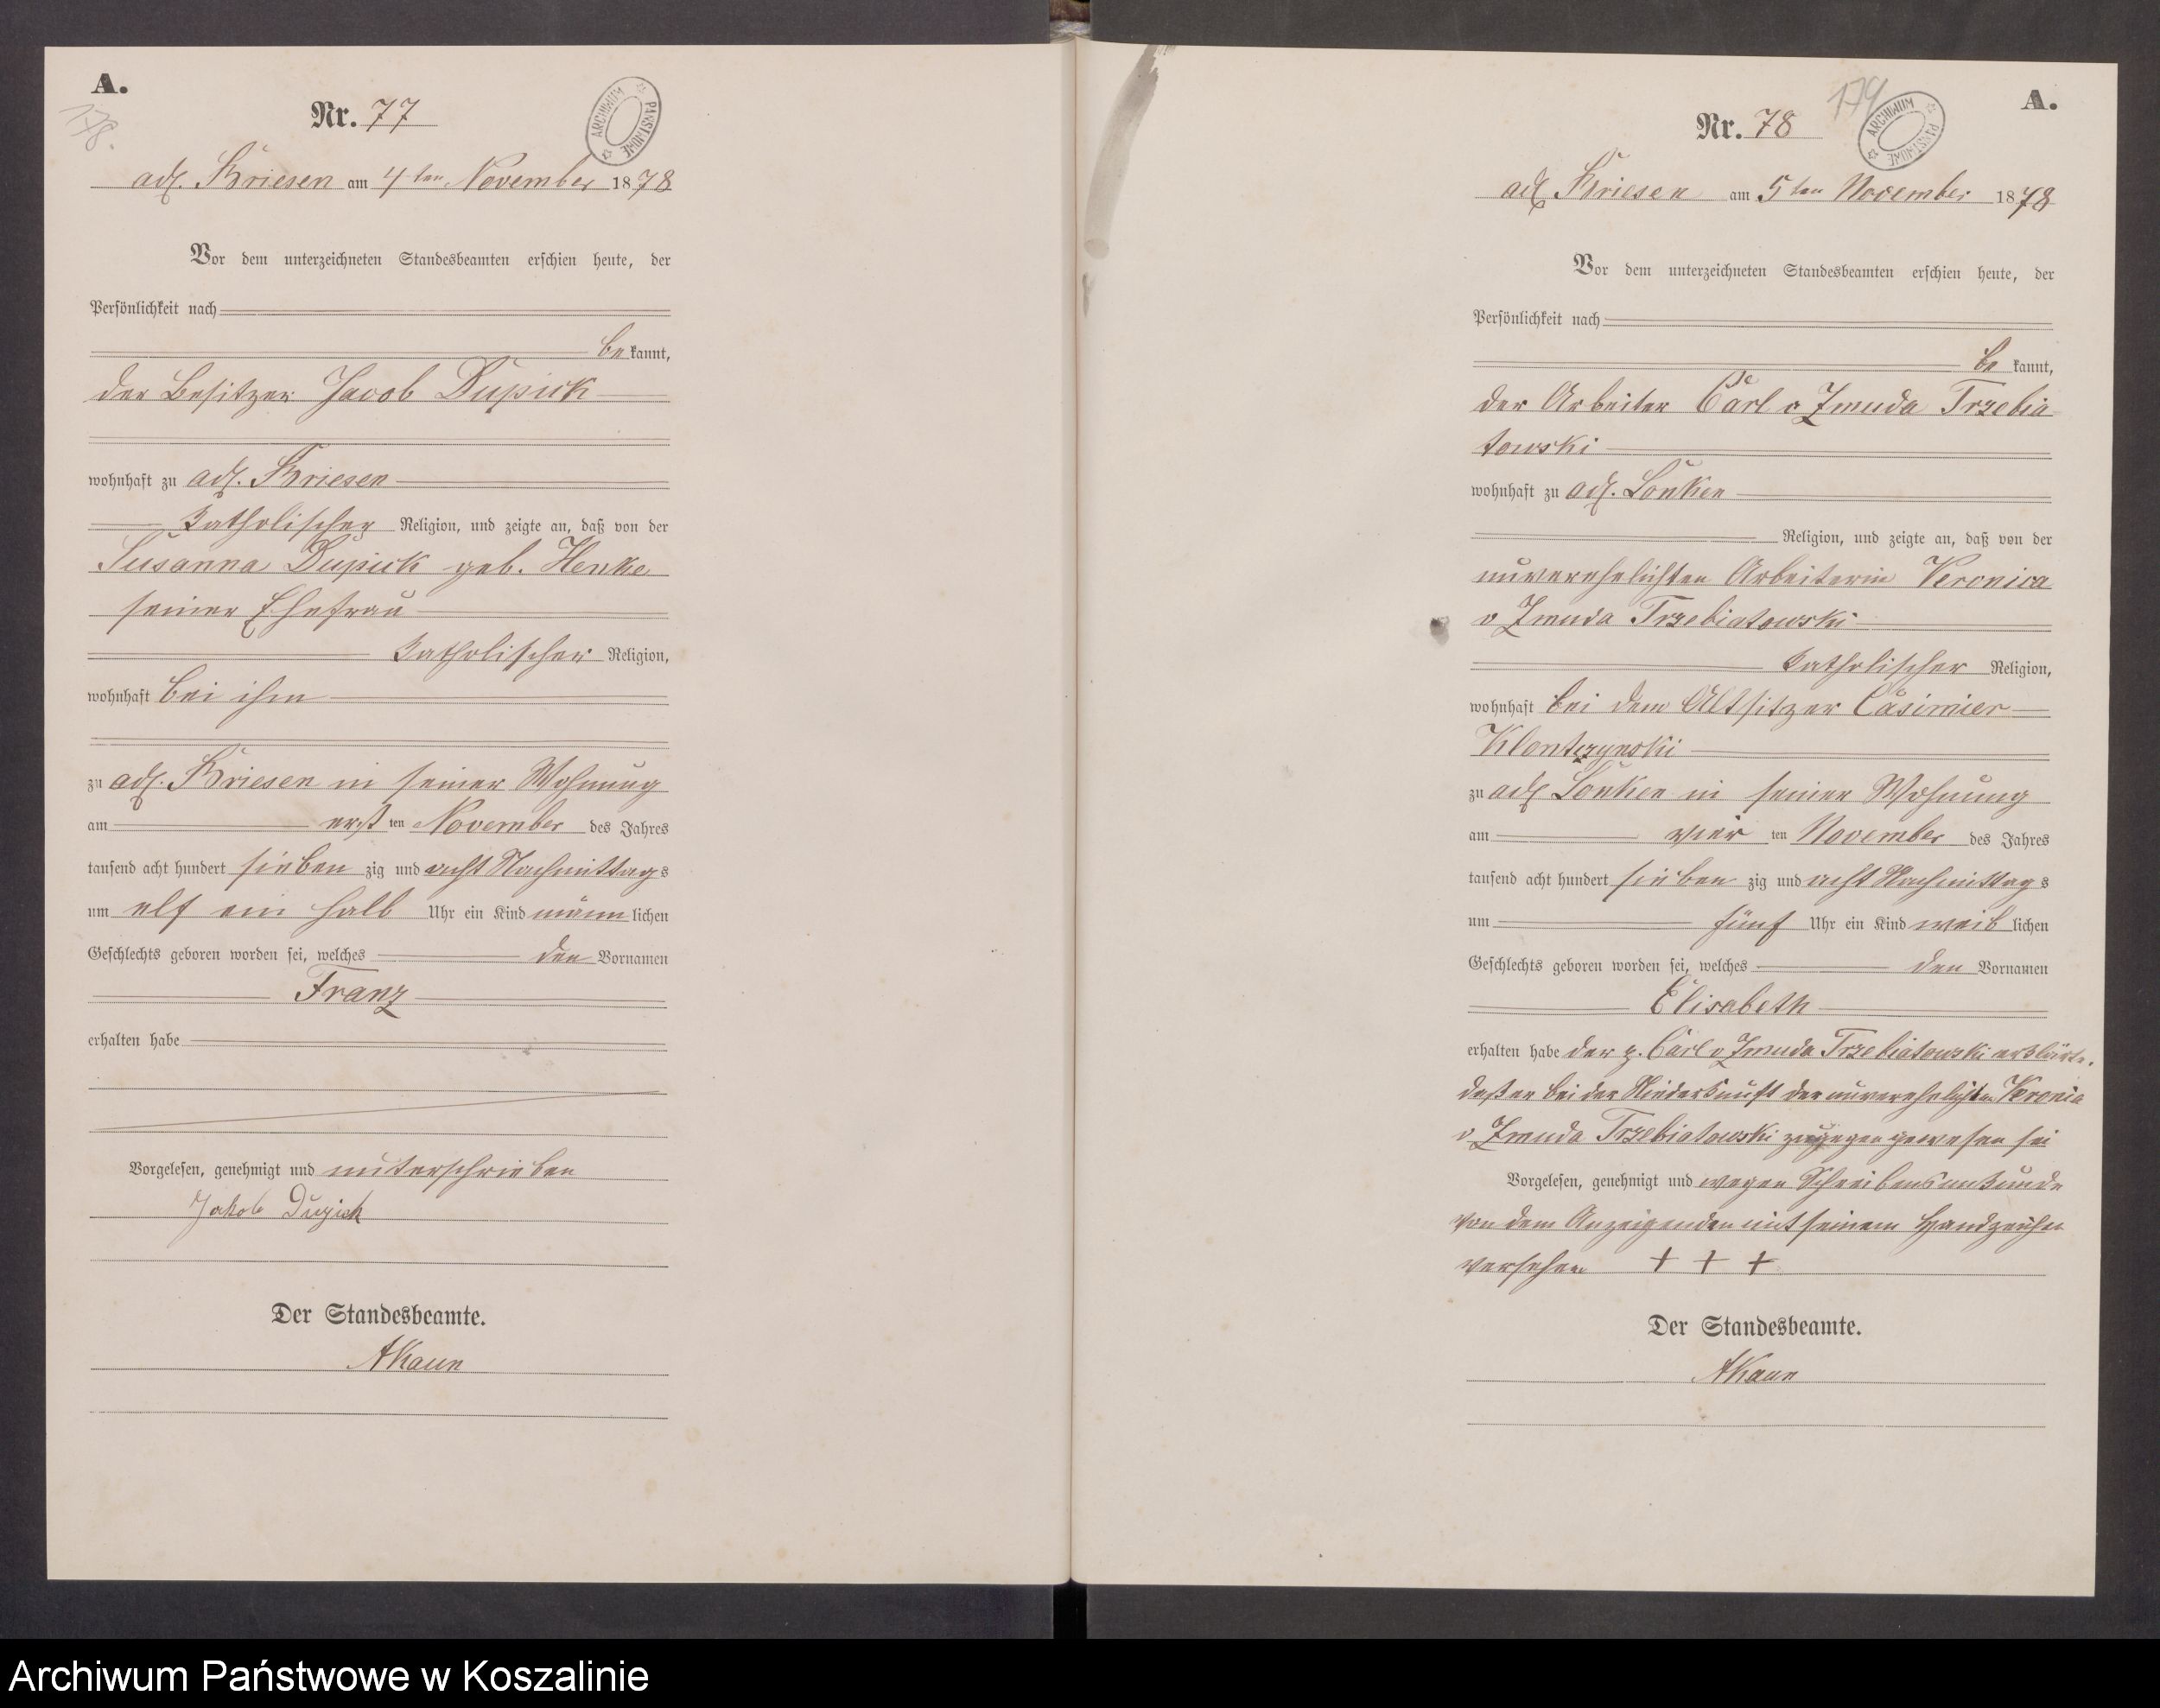 A.
178.
Nr. 77
ARCHIWUM PAŃSTWOWE
adl. Briesen am 4ten November 1878
Vor dem unterzeichneten Standesbeamten erschien heute, der
Persönlichkeit nach
bekannt,
der Besitzer Jacob Dupick
wohnhaft zu adl. Briesen
katholischer Religion, und zeigte an, daß von der
Susanna Dupick geb. Henke
seiner Ehefrau
katholischer Religion,
wohnhaft bei ihm
zu adl. Briesen in seiner Wohnung
am ersten November des Jahres
tausend acht hundert siebenzig und acht Nachmittags
um elf ein halb Uhr ein Kind männlichen
Geschlechts geboren worden sei, welches den Vornamen
Franz
erhalten habe
Vorgelesen, genehmigt und unterschrieben
Jakob Dupick
Der Standesbeamte.
AKaun
179
A.
Nr. 78
ARCHIWUM PAŃSTWOWE
adl Briesen am 5ten November 1878
Vor dem unterzeichneten Standesbeamten erschien heute, der
Persönlichkeit nach
bekannt,
der Arbeiter Carl v Zmuda Trzebia
towski
wohnhaft zu adl. Lonken
Religion, und zeigte an, daß von der
unverehelichten Arbeiterin Veronica
v Zmuda Trzebiatowski
katholischer Religion,
wohnhaft bei dem Altsitzer Casimier
Klontczynski
zu adl Lonken in seiner Wohnung
am vierten November des Jahres
tausend acht hundert siebenzig und acht Nachmittags
um fünf Uhr ein Kind weiblichen
Geschlechts geboren worden sei, welches den Vornamen
Elisabeth
erhalten habe der p. Carl v Zmuda Trzebiatowski erklärte,
daß er bei der Niederkunft der unverehelichten Veronica
v Zmuda Trzebiatowski zugegen gewesen sei
Vorgelesen, genehmigt und wegen Schreibensunkunde
von dem Anzeigenden mit seinem Handzeichen
versehen + + +
Der Standesbeamte.
AKaun
Archiwum Państwowe w Koszalinie